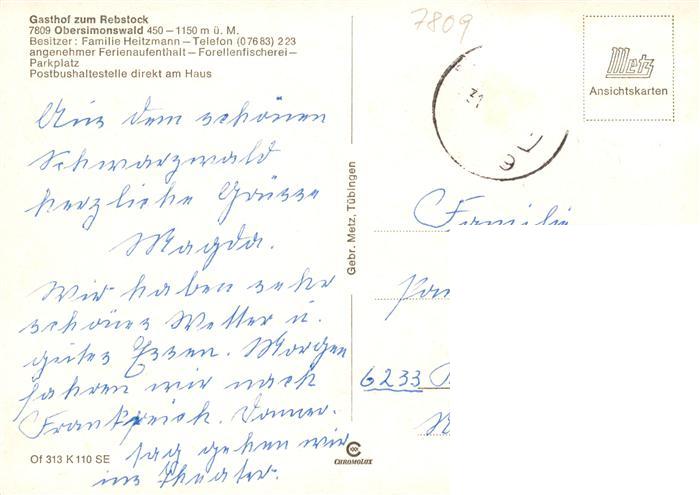 7809
Gasthof zum Rebstock
7809 Obersimonswald 450–1150 m ü. M.
Besitzer: Familie Heitzmann – Telefon (07683) 223
angenehmer Ferienaufenthalt – Forellenfischerei –
Parkplatz
Postbushaltestelle direkt am Haus
Metz
Ansichtskarten
Aus dem schönen
Schwarzwald
herzliche Grüsse
Magda.
Wir haben sehr
schönes Wetter u.
gutes Essen. Morgen
fahren wir nach
Frankreich. Donners-
tag gehen wir
ins Theater.
Gebr. Metz, Tübingen
Familie
6233
Of 313 K 110 SE
CHROMOLUX